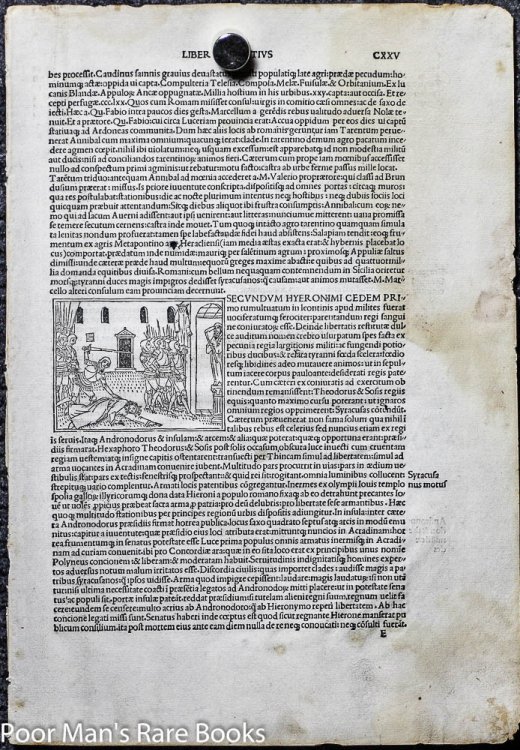 LIBER TIVS CXXV
bes processit. Caudinus samnis grauius deuastatus populatiq; late agri: prædæ pecudum: ho
minumq; actæ: oppida ui capta. Compulteria Telesia: Compsa: Melæ: Fulsulæ & Orbitanium. Ex lu
canis Blandæ. Appuloꝝ Ancæ oppugnatæ. Millia hostium in his urbibus .xxv. capta: aut occisa. Et re
cepti perfugæ .ccc.lxx. Quos cum Romam misisset consul: uirgis in comitio cæsi omnes: ac de saxo de
iecti. Hæc a. Qu. Fabio intra paucos dies gesta. Marcellum a gerēdis rebus ualitudo aduersa Nolæ te
nuit. Et a prætore. Qu. Fabio circa Luceriam prouincia erat: Accua oppidum per eos dies ui captū
statiuaq; ad Ardoneas communita. Dum hæc aliis locis ab romanis gerunt̃ iam Tarentum perue
nerat Annibal cum maximo omnium quacunq; ierat clade. In tarentino demum agro pacatum ince
dere agmen cœpit. nihil ibi uiolatum: neq; usquam excessum est
apparebatq; id non modestia militū
aut ducis: nisi ad conciliandos tarentinoꝝ animos fieri. Cæterum cum prope iam mœnibus accessisset
nullo ad conspectum primi agminis: ut rebatur: motu facto: castra ab urbe ferme passus mille locat.
Tarēti triduo: antequam Annibal ad mœnia accederet a. M. Valerio proprætore: qui classi ad Brun
dusium præerat: missus. Is priore iuuentute conscripta: dispositisq; ad omnes portas: circaq; muros:
qua res postulabat stationibus: die ac nocte plurimum intentus neq; hostibus: neq; dubiis sociis loci
quicquam præbuit
Annibal: cum eoꝝ ne
mo qui ad lacum Auerni adissent: aut ipsi uenirent: aut litteras: nunciumue mitterent: uana promissa
se temere secutum cernens: castra inde mouet. Tum quoq; intacto agro tarentino quamquam simula
ta lenitas nondum profuerat: tamen spe labefactandæ fidei haud absistens. Salapiam tendit: eoq; fru
mentum ex agris Metapontino atq; Heracliensi (iam media æstas exacta erat: & hybernis placebat lo
cus) comportat. prædatum inde numidæ: mauriq; per salētinum agrum: proximosq; Appuliæ saltus
dimissi: unde cæteræ prædæ haud multum: equoꝝ greges maxime abactæ: e quibus ad quattuor mil
lia domanda equitibus diuisa. Romani: cum bellum nequaquam contemnendum in Sicilia oriretur
morsq; tyranni duces magis impigros dedisset syracusanis: q̄ causam: aut animos mutasset. M. Mar
cello alteri consulum eam prouinciam decernunt.
SECVNDVM HYERONIMI CEDEM PRI
mo tumultuatum in leontinis apud milites fuerat
uociferatumq; ferociter: parentandum regi sangui
ne coniuratoꝝ esse. Deinde libertatis restitutæ dul
ce auditum nomen crebro usurpatum spes facta ex
pecunia regia largitionis militiæ: ac fungendi potio
ribus ducibus: & relata tyranni fœda scelera: fœdio
resq; libidines adeo mutauere animos: ut in sepul
tum iacere corpus paulo ante desiderati regis pate
rentur. Cum cæteri ex coniuratis ad exercitum ob
tinendum remansissent: Theodotus & Sosis regiis
equis: quanto maximo cursu poterant: ut ignaros
omnium regios opprimerent: Syracusas cōtēdūt.
Cæterum præuenerat non fama solum qua nihil ī
talibus rebus est celerius sed nuncius etiam ex regi
is seruis. Itaq; Andronodorus & insulam: & arcem: & aliaquæ poterat: quæq; opportuna erant: præsi
diis firmarat. Hexapylo Theodotus & Sosis post solis occasum: obscura luce inuecti: cum cruentam
regiam uestem: atq; insigne capitis ostentarent: transuecti per Thicam simul ad libertatem: simul ad
arma uocantes in Acradinam conuenire iubent. Multitudo pars procurrit in uias: pars in
stibulis stat: pars ex tectis: fenestrisq; prospectant: & quid rei sit: rogitant. omnia luminibus collucent
Syracusa
nus motus
strepituq; uario complentur. Armati locis patentibus cōgregantur. Inermes ex olympii Iouis templo
spolia galloꝝ: illyricorumq; dona data Hieroni a populo romano
detrahunt: precantes Io
uē ut uolēs: ppicius præbeat sacra arma: p patria: pro deū delubris: pro libertate sese armantibus. Hæc
quoq; multitudo stationibus per principes regionū urbis dispositis adiungitur. In insula: inter cæte
ra Andronodorus præsidiis firmat horrea publica. locus saxo quadrato septus: atq; arcis in modū emu
nitus: capitur a iuuentute: quæ præsidio eius loci attributa erat: mittuntq; nuncios in Acradinam: hor
rea: frumentumq; in senatus potestate esse. Luce prima populus omnis armatus: inermisq; in Acradi
nam ad curiam conuenit. ibi pro Concordiæ ara: quæ in eo sita loco erat: ex principibus unus nomie
Polyneus concionem & liberam: & moderatam habuit. Seruitudinis indignitatisq; homines exper
tos aduersus notum malum irritatos esse. Discordia ciuilis quas importet clades: audisse magis a pa
tribus syracusanos: q̄ ipsos uidisse. Arma quod impigre cepissent: laudare: magis laudaturū: si non utā
tur: nisi ultima necessitate coacti: præsētia legatos ad Andronodorū mitti placere: ut in potestate sena
tus: ac populi sit. portas insulæ patefat: reddat præsidium: si tutelam alieni regni suum regnum uelit fa
cere: eundem se censere: multo acrius ab Andronodoro: q̄ ab Hieronymo repeti libertatem. Ab hac
concione legati missi sunt. Senatus haberi inde cœptus est: quod sicut regnante Hierone manserat pu
blicum consilium: ita post mortem eius ante eam diem nulla de re neq; conuocati: neq; cōsulti fuerāt.
E
Poor Man's Rare Books